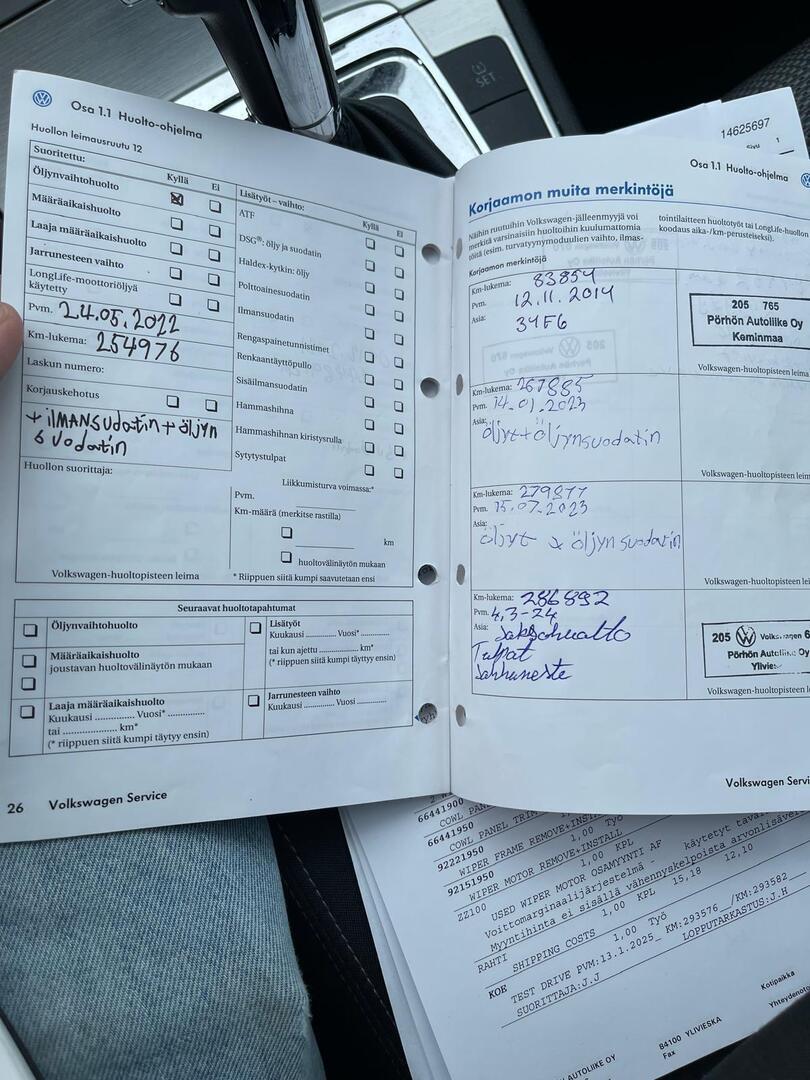 SET
14625697
Sivu
1
Osa 1.1 Huolto-ohjelma
Huollon leimausruutu 12
Suoritettu:
Kyllä Ei
Öljynvaihtohuolto
Määräaikaishuolto
Laaja määräaikaishuolto
Jarrunesteen vaihto
LongLife-moottoriöljyä
käytetty
Pvm. 24.05.2022
Km-lukema: 254976
Laskun numero:
Korjauskehotus
+ ilMANSUdatin + öljyn
suodatin
Huollon suorittaja:
Volkswagen-huoltopisteen leima
Lisätyöt – vaihto:
Kyllä Ei
ATF
DSG®: öljy ja suodatin
Haldex-kytkin: öljy
Polttoainesuodatin
Ilmansuodatin
Rengaspainetunnistimet
Renkaantäyttöpullo
Sisäilmansuodatin
Hammashihna
Hammashihnan kiristysrulla
Sytytystulpat
Liikkumisturva voimassa:*
Pvm.
Km-määrä (merkitse rastilla)
km
huoltovälinäytön mukaan
* Riippuen siitä kumpi saavutetaan ensi
Seuraavat huoltotapahtumat
Öljynvaihtohuolto
Määräaikaishuolto
joustavan huoltovälinäytön mukaan
Laaja määräaikaishuolto
Kuukausi .............. Vuosi* ..............
tai .................... km*
(* riippuen siitä kumpi täyttyy ensin)
Lisätyöt
Kuukausi ........... Vuosi* ...........
tai kun ajettu ................ km*
(* riippuen siitä kumpi täyttyy ensin)
Jarrunesteen vaihto
Kuukausi ........... Vuosi ...........
26 Volkswagen Service
Osa 1.1 Huolto-ohjelma
Korjaamon muita merkintöjä
Näihin ruutuihin Volkswagen-jälleenmyyjä voi
merkitä varsinaisiin huoltoihin kuulumattomia
töitä (esim. turvatyynymoduulien vaihto, ilmas-
tointilaitteen huoltotyöt tai LongLife-huollon
koodaus aika-/km-perusteiseksi).
Korjaamon merkintöjä
Km-lukema: 83854
Pvm. 12.11.2014
Asia: 34F6
205 765
Pörhön Autoliike Oy
Keminmaa
Volkswagen-huoltopisteen leima
Km-lukema: 267885
Pvm. 14.01.2023
Asia: öljyt+öljynsuodatin
Volkswagen-huoltopisteen leima
Km-lukema: 279877
Pvm. 15.07.2023
Asia: öljyt + öljynsuodatin
Volkswagen-huoltopisteen leima
Km-lukema: 286892
Pvm. 4.3-24
Asia: Jaksohuolto
Tulpat
Jarruneste
205
Pörhön Autoliike Oy
Ylivieska
Volkswagen-huoltopisteen leima
Volkswagen Servi
66441900
COWL PAN
66441950
COWL PANEL TRIM
92221950
WIPER FRAME REMOVE+INST
1,00 Työ
92151950
WIPER MOTOR REMOVE+INSTALL
1,00 KPL
ZZ100
USED WIPER MOTOR OSAMYYNTI AF
Voittomarginaalijärjestelmä - käytetyt tava
Myyntihinta ei sisällä vähennyskelpoista arvonlisäve
RAHTI 1,00 KPL 15,18 12,10
SHIPPING COSTS
KOE 1,00 Työ
TEST DRIVE PVM:13.1.2025_ KM:293576 _/KM:293582 _
SUORITTAJA:J.J LOPPUTARKASTUS:J.H
Kotipaikka
AUTOLIIKE OY
84100 YLIVIESKA
Fax
Yhteydenoto